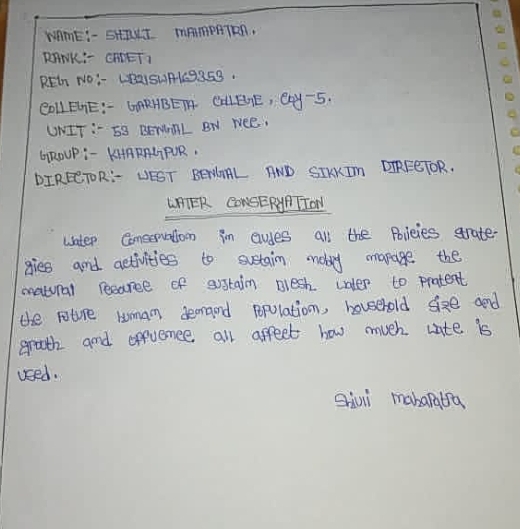 NAME:- SHIULI MAHAPATRA.
RANK:- CADET,
REG NO:- WB21SWA169353.
COLLEGE:- GARHBETA COLLEGE, Coy-5.
UNIT:- 53 BENGAL BN NCC.
GROUP:- KHARAGPUR.
DIRECTOR:- WEST BENGAL AND SIKKIM DIRECTOR.
WATER CONSERVATION
Water Conservation in cludes all the Policies strate-
gies and activities to sustain manage the
natural resource of sustain water to Protent
the Future human demand Population, household size and
growth and all affect how much wate is
used.
Shiuli Mahapatra